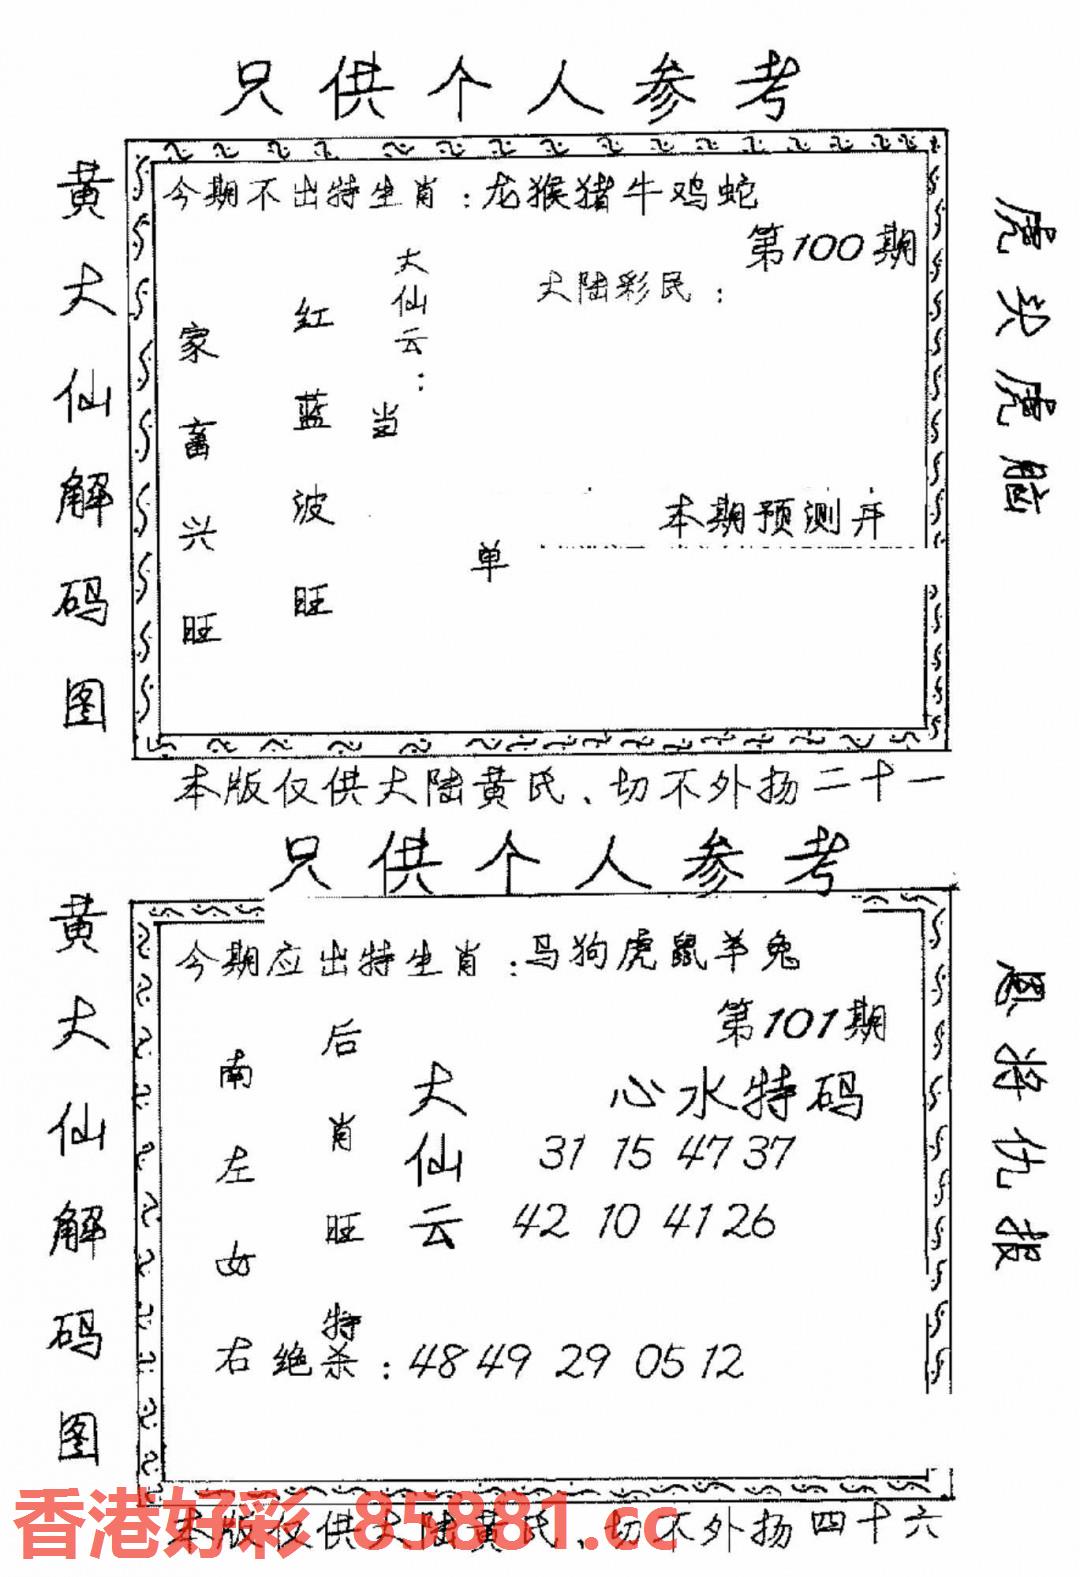 只供个人参考
黄大仙解码图
今期不出特生肖:龙猴猪牛鸡蛇
第100期
大陆彩民:
大仙云:
红蓝波旺
家畜兴旺
当
单
本期预测开
虎头虎脑
本版仅供大陆黄氏、切不外扬二十一
只供个人参考
黄大仙解码图
今期应出特生肖:马狗虎鼠羊兔
第101期
南左女右
后肖旺特
大仙云
心水特码
31 15 47 37
42 10 41 26
绝杀:48 49 29 05 12
恩将仇报
本版仅供大陆黄氏、切不外扬四十六
香港好彩 85881.cc